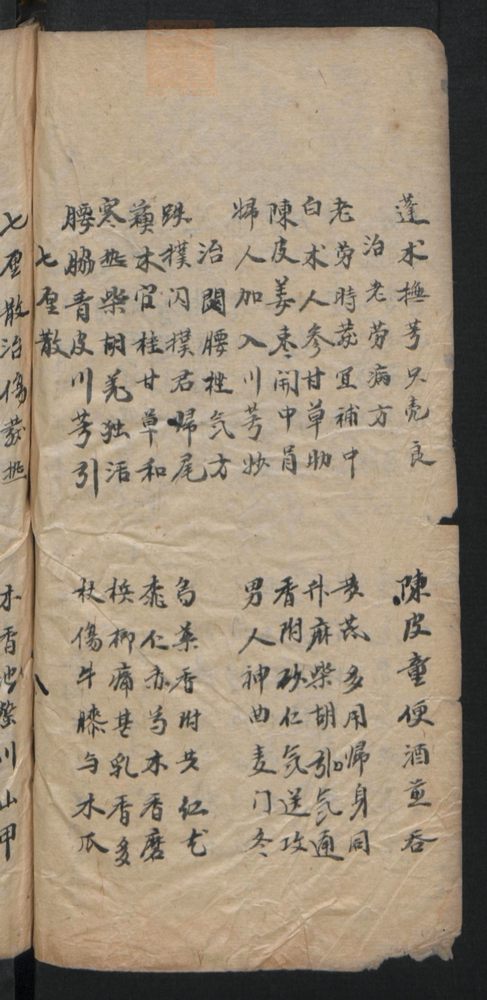 蓬术撫芎只壳良 陳皮童便酒並吞
治老劳病方
老劳時發宜補中 黄芪多用歸身同
白术人参甘草助 升麻柴胡引气通
陳皮姜枣闹中肖 香附砂仁气逆攻
婦人加入川芎妙 男人神曲麦门冬
治閃腰挫气方
跌撲闪撲君歸尾 乌药香附共红花
蘓木官桂甘草和 桃仁赤芍木香磨
寒热柴胡羌独活 梹榔痛甚乳香多
腰胁青皮川芎引 杖傷牛膝与木瓜
七厘散
七厘散治傷發热 木香川山甲